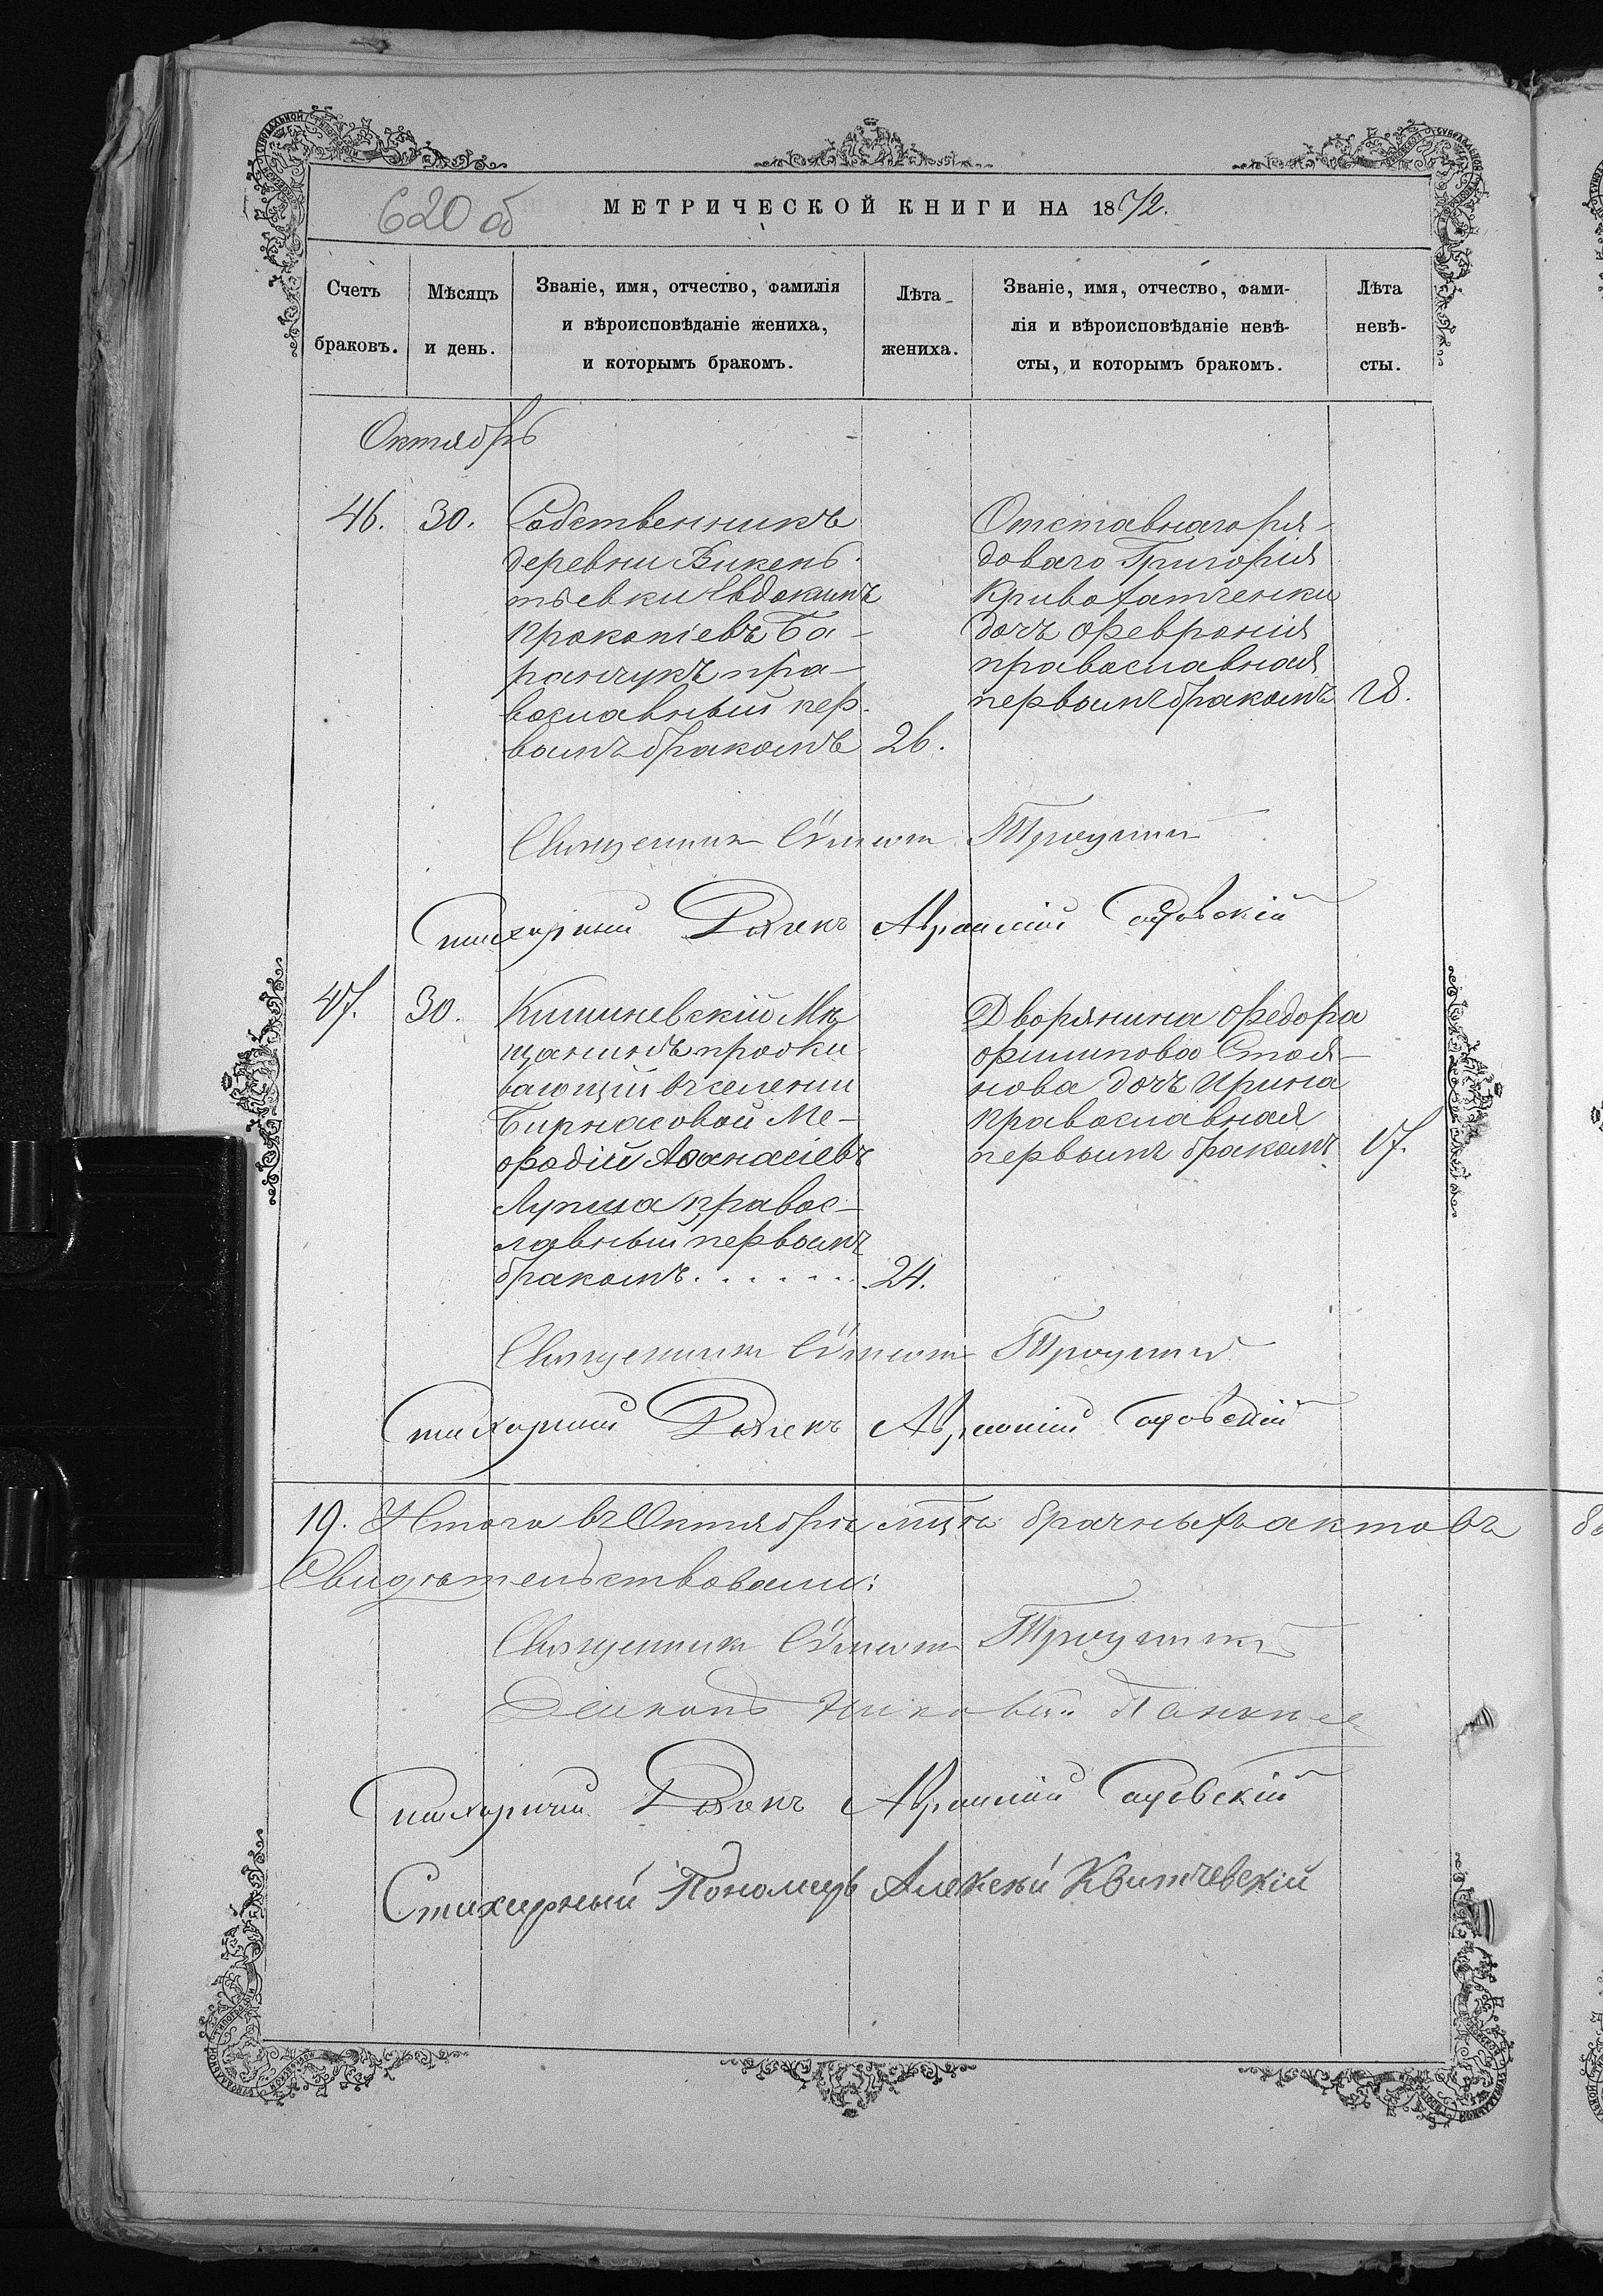 620 об
МЕТРИЧЕСКОЙ КНИГИ НА 1872.
Счетъ браковъ.
Мѣсяцъ и день.
Званіе, имя, отчество, фамилія
и вѣроисповѣданіе жениха,
и которымъ бракомъ.
Лѣта жениха.
Званіе, имя, отчество, фами-
лія и вѣроисповѣданіе невѣ-
сты, и которымъ бракомъ.
Лѣта невѣ-
сты.
Октябрь
46. 30.
Собственникъ
деревни Викень-
тьевки Евдокимъ
Прокопіевъ Ба-
ранчукъ пра-
вославный пер-
вымъ бракомъ 26.
Отставнаго ря-
доваго Григорія
Кривохатченки
дочь Февронія
православная
первымъ бракомъ 18.
Священникъ Троицкій
Стихарный Дьячекъ Садовскій
47. 30.
Кишиневскій Мѣ-
щанинъ прожи-
вающій въ селении
Бирносовой Ме-
фодій Аѳанасіевъ
Лупша правос-
лавный первымъ
бракомъ . . . . . . . 24.
Дворянина Федора
Филипова Стоя-
нова дочь Ирина
православная
первымъ бракомъ 17.
Священникъ Троицкій
Стихарный Дьячекъ Садовскій
19. Итого въ Октябрѣ мцѣ брачныхъ актовъ
Свидѣтельствовали:
Священникъ Троицкій
Діаконъ
Стихарный Дьячекъ Садовскій
Стихарный Пономарь Алексѣй Квитчевскій